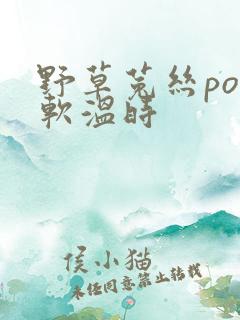 野草菟絲po
軟溫時
侯小猫
未经同意禁止转载